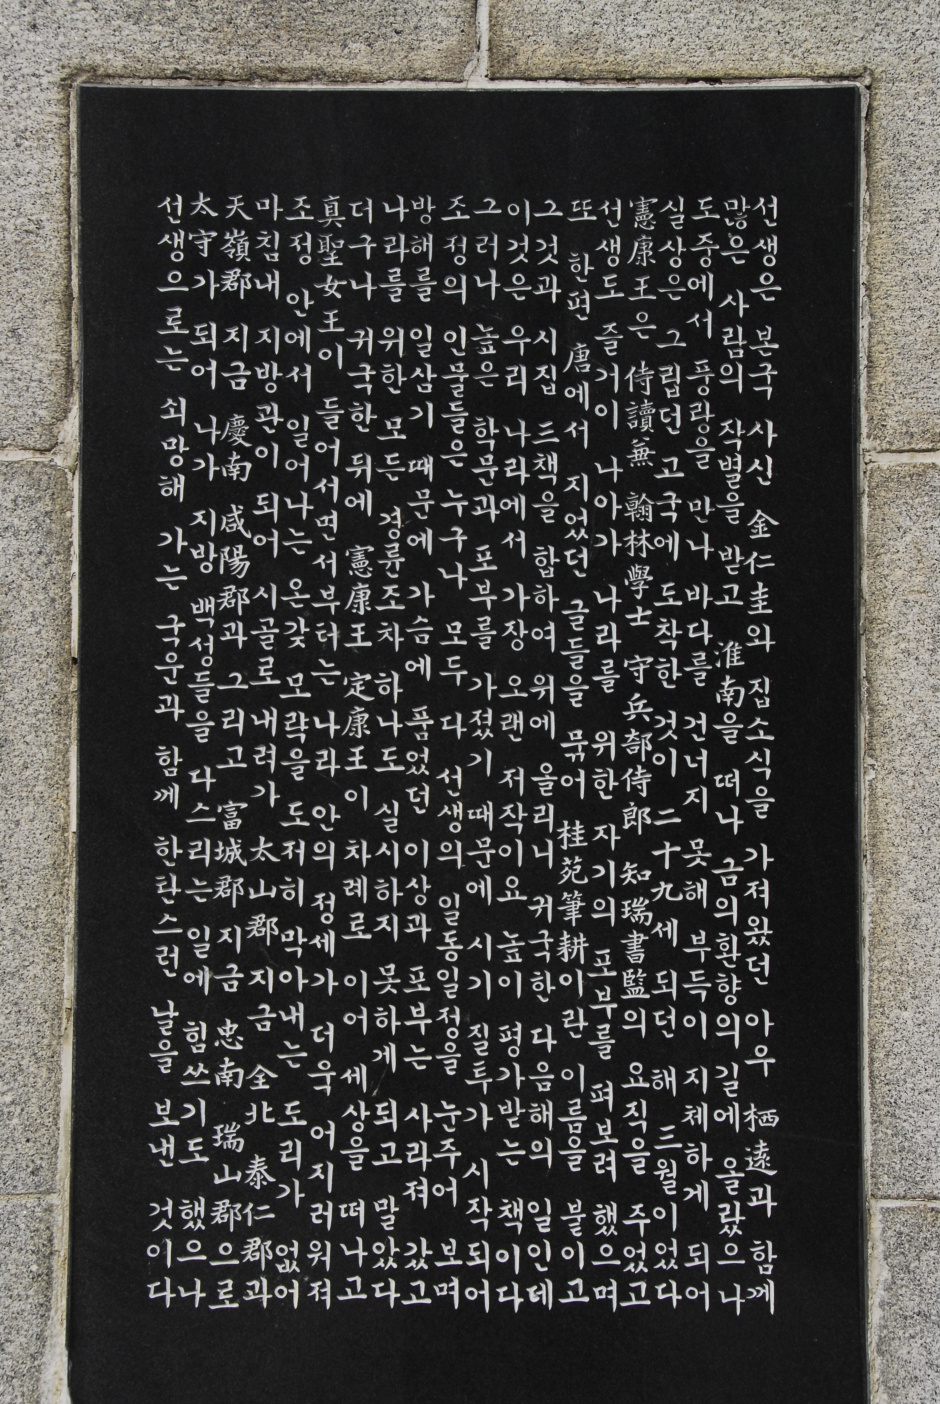 선생은 본국 사신 金仁圭와 집소식을 가져왔던 아우 栖遠과 함께
많은 사람의 작별을 받고 淮南을 떠나 금의환향의 길에 올랐으나
도중에서 풍랑을 만나 바다를 건너지 못해 부득이 지체하게 되어
실상은 그립던 고국에 도착한 것이 二十九세 되던 해 三월이었다
憲康王은 侍讀兼 翰林學士 守兵部侍郎 知瑞書監의 요직을 주었고
선생도 즐거이 나아가 나라를 위한 자기의 포부를 펴보려 했으며
또 한편 唐에서 지었던 글들을 묶어 桂苑筆耕이란 이름을 붙이고
그것과 시집 三책을 합하여 위에 올리니 귀국한 다음해의 일인데
이것은 우리 나라에서 가장 오랜 저작이요 높이 평가받는 책이다
그러나 높은 학문과 포부를 가졌기 때문에 시기 질투가 시작되어
조정의 인물들은 누구나 모두 다 선생의 일동일정을 눈주어 보며
방해를 일삼기 때문에 가슴에 품었던 이상과 포부는 사라져 갔고
나라를 위한 모든 경륜조차 하나도 실시하지 못하게 되고 말았다
더구나 귀국한 뒤에 憲康王 定康王이 차례로 이어 세상을 떠나고
真聖女王이 들어서면서부터는 나라 안의 정세가 더욱 어지러워져
조정 안에서 일어나는 온갖 모략을 도저히 막아내는 도리가 없어
마침내 지방관이 되어 시골로 내려가 太山郡 지금 全北 泰仁郡과
天嶺郡 지금 慶南 咸陽郡과 그리고 富城郡 지금 忠南 瑞山郡으로
太守가 되어 나가 지방 백성들을 다스리는 일에 힘쓰기도 했으나
선생으로는 쇠망해 가는 국운과 함께 한탄스런 날을 보낸 것이다